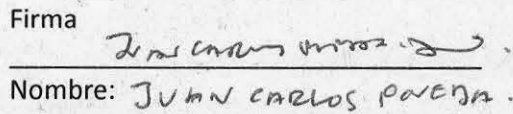 Firma
Juan Carlos
Nombre: JUAN CARLOS POVEDA.